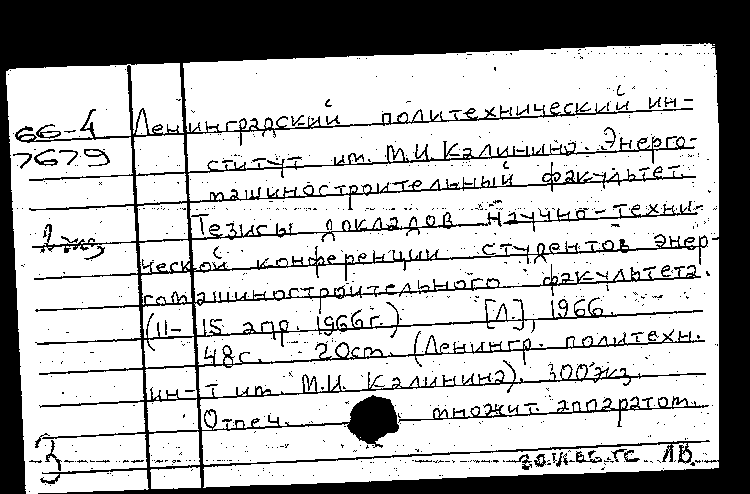 66-4 Ленинградский политехнический ин-
7679 ститут им. М.И. Калинина. Энерго-
машиностроительный факультет.
2 экз Тезисы докладов научно-техни-
ческой конференции студентов энер-
гомашиностроительного факультета.
(11- 15 апр. 1966 г.) [Л.], 1966.
48 с. 20 см. (Ленингр. политехн.
ин-т им. М.И. Калинина). 300 экз.
Отпеч. множит. аппаратом.
3
ЛВ.